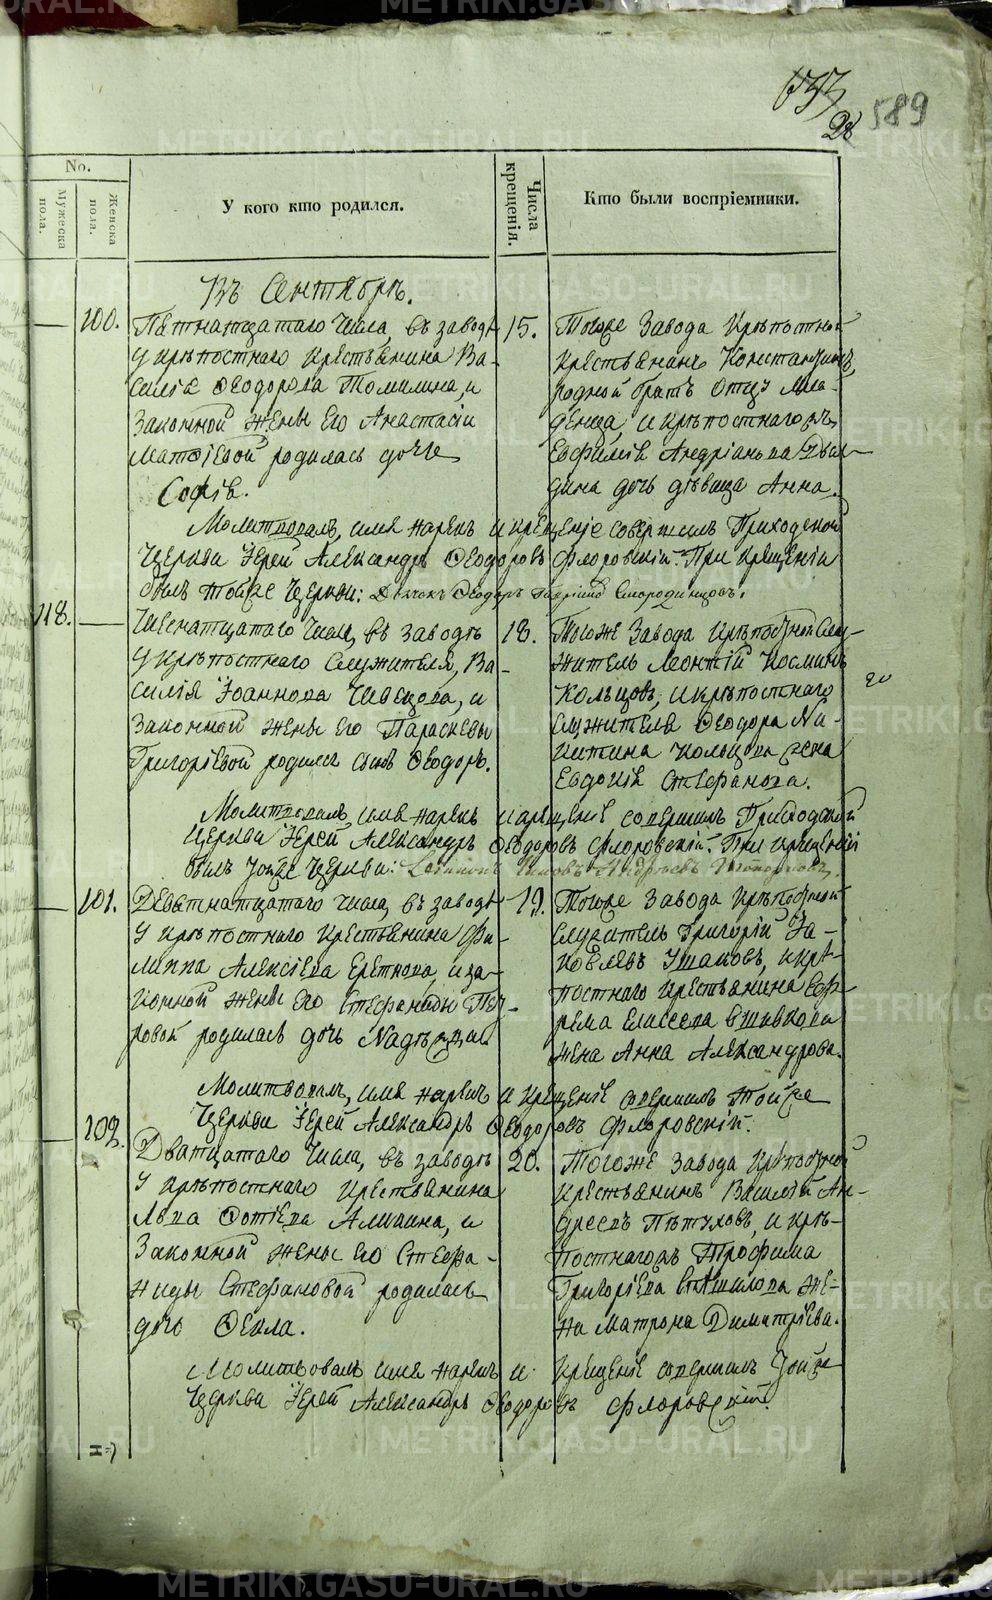 METRIKI.GASO-URAL.RU
589
28
No.
Мужеска пола.
Женска пола.
У кого кто родился.
Числа крещенія.
Кто были воспріемники.
Въ Сентябрѣ.
100.
Пятнатцатаго числа, въ заводѣ
у крѣпостнаго крестьянина Ва-
силія Ѳеодорова Томилина, и
законной жены его Анастасіи
Матѳіевой родилась дочь
Софія.
15.
Тогоже завода крѣпостной
крестьянинъ Константинъ,
родной братъ отцу мла-
денца, и крѣпостнагожъ
Евфимія Андріанова
дина дочь дѣвица Анна.
Молитвовалъ, имя нарекъ и крещеніе совершилъ Приходской
церкви Іерей Александръ Ѳеодоровъ Флоровскій. При крещеніи
былъ тойже церкви: Дьячокъ Ѳеодоръ Смородинцовъ.
118.
Шеснатцатаго числа, въ заводѣ
у крѣпостнаго служителя, Ва-
силія Іоаннова Швецова, и
законной жены его Параскевы
Григоріевой родился сынъ Ѳеодоръ.
18.
Тогоже завода крѣпостной слу-
житель Леонтій Косминъ
Кольцовъ, и крѣпостнаго
служителя Ѳеодора Ни-
китина Кольцова жена
Евдокія Стефанова.
Молитвовалъ, имя нарекъ и крещеніе совершилъ Приходской
церкви Іерей Александръ Ѳеодоровъ Флоровскій. При крещеніи
былъ тойже церкви:
101.
Девятнатцатаго числа, въ заводѣ
у крѣпостнаго крестьянина Фи-
липпа Алексіева Еретнова, и за-
конной жены его Стефаниды Пет-
ровой родилась дочь Надѣжда.
19.
Тогоже завода крѣпостной
служитель Григорій Іа-
ковлевъ Ушаковъ, и крѣ-
постнаго крестьянина Еф-
рема Елисеева Вшивкова
жена Анна Александрова.
Молитвовалъ, имя нарекъ и крещеніе совершилъ тойже
церкви Іерей Александръ Ѳеодоровъ Флоровскій.
102.
Дватцатаго числа, въ заводѣ
у крѣпостнаго крестьянина
Льва Фотіева Аликина, и
законной жены его Стефа-
ниды Стефановой родилась
дочь Ѳекла.
20.
Тогоже завода крѣпостной
крестьянинъ Василій Ан-
дреевъ Пѣтуховъ, и крѣ-
постнагожъ Трофима
Григоріева жѐ-
на Матрона Димитріева.
Молитвовалъ имя нарекъ и крещеніе совершилъ тойже
церкви Іерей Александръ Ѳеодоровъ Флоровскій.